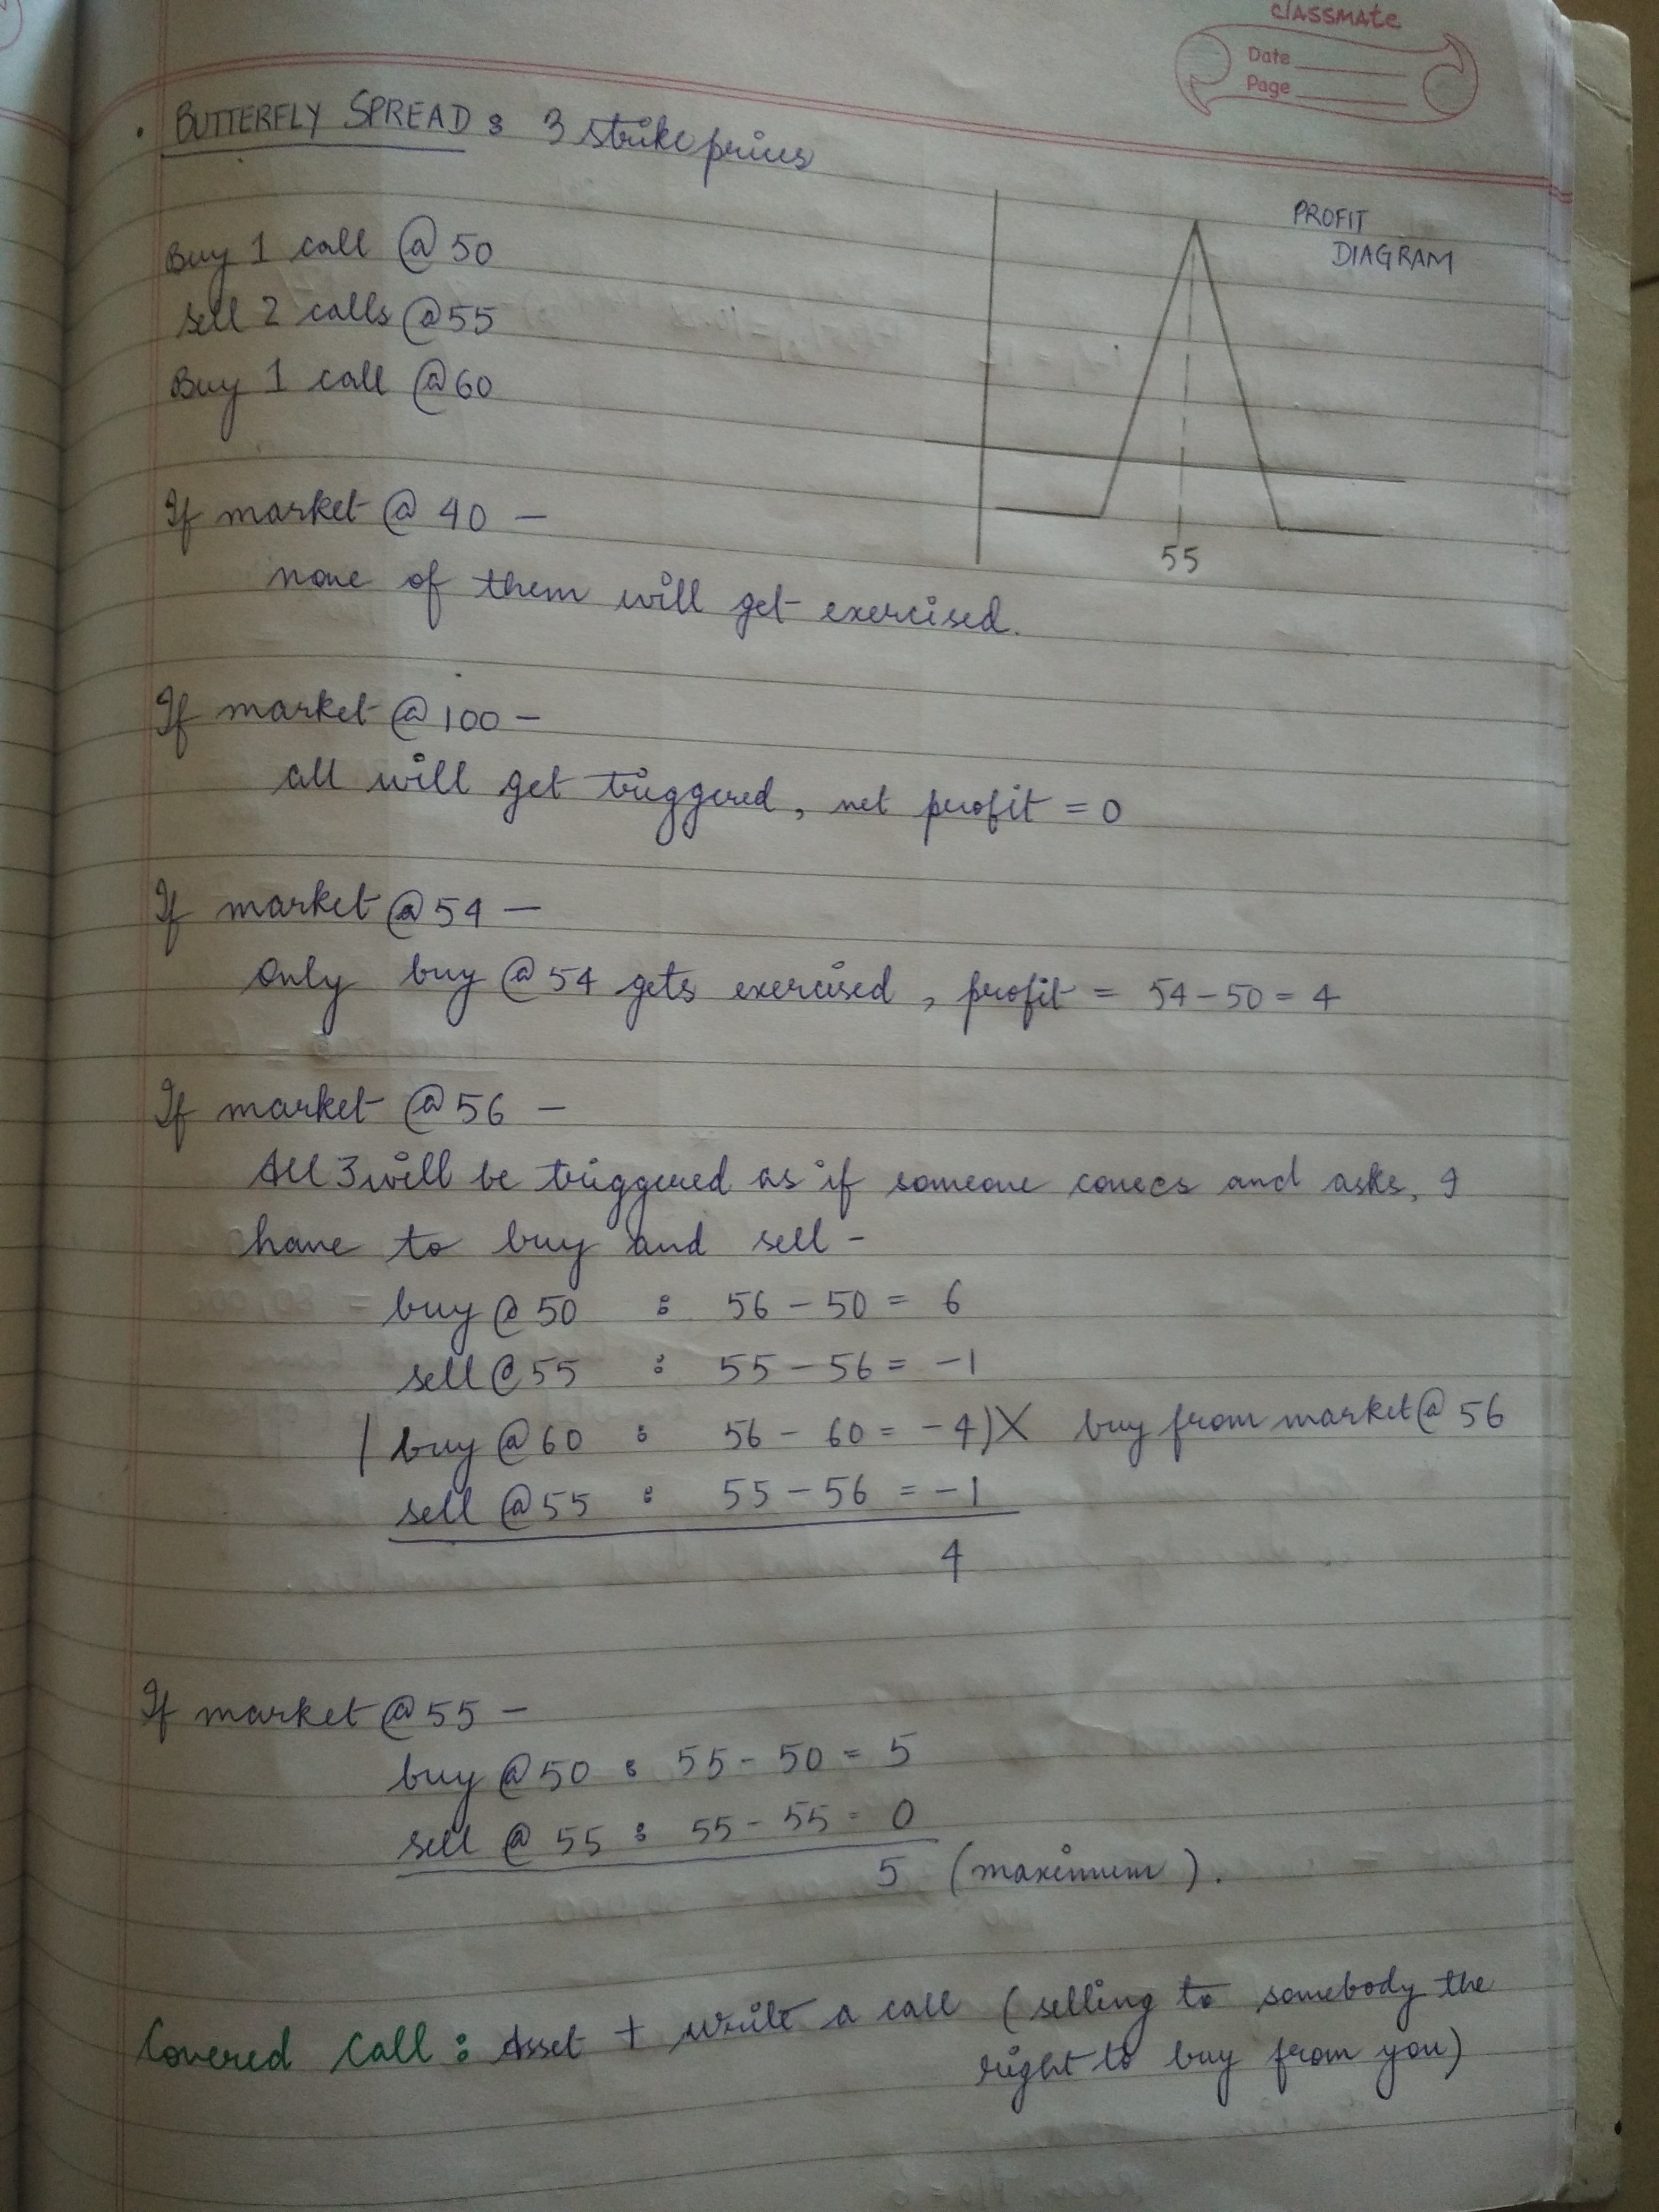 classmate
Date
Page
• BUTTERFLY SPREAD : 3 strike prices
Buy 1 call @ 50
sell 2 calls @ 55
Buy 1 call @ 60
PROFIT
DIAGRAM
55
If market @ 40 –
none of them will get exercised.
If market @ 100 –
all will get triggered, net profit = 0
If market @ 54 –
Only buy @ 54 gets exercised, profit = 54 - 50 = 4
If market @ 56 –
All 3 will be triggered as if someone comes and asks, I
have to buy and sell -
buy @ 50 : 56 - 50 = 6
sell @ 55 : 55 - 56 = -1
(buy @ 60 : 56 - 60 = -4) X buy from market @ 56
sell @ 55 : 55 - 56 = -1
4
If market @ 55 –
buy @ 50 : 55 - 50 = 5
sell @ 55 : 55 - 55 = 0
5 (maximum).
Covered Call : Asset + write a call (selling to somebody the
right to buy from you)